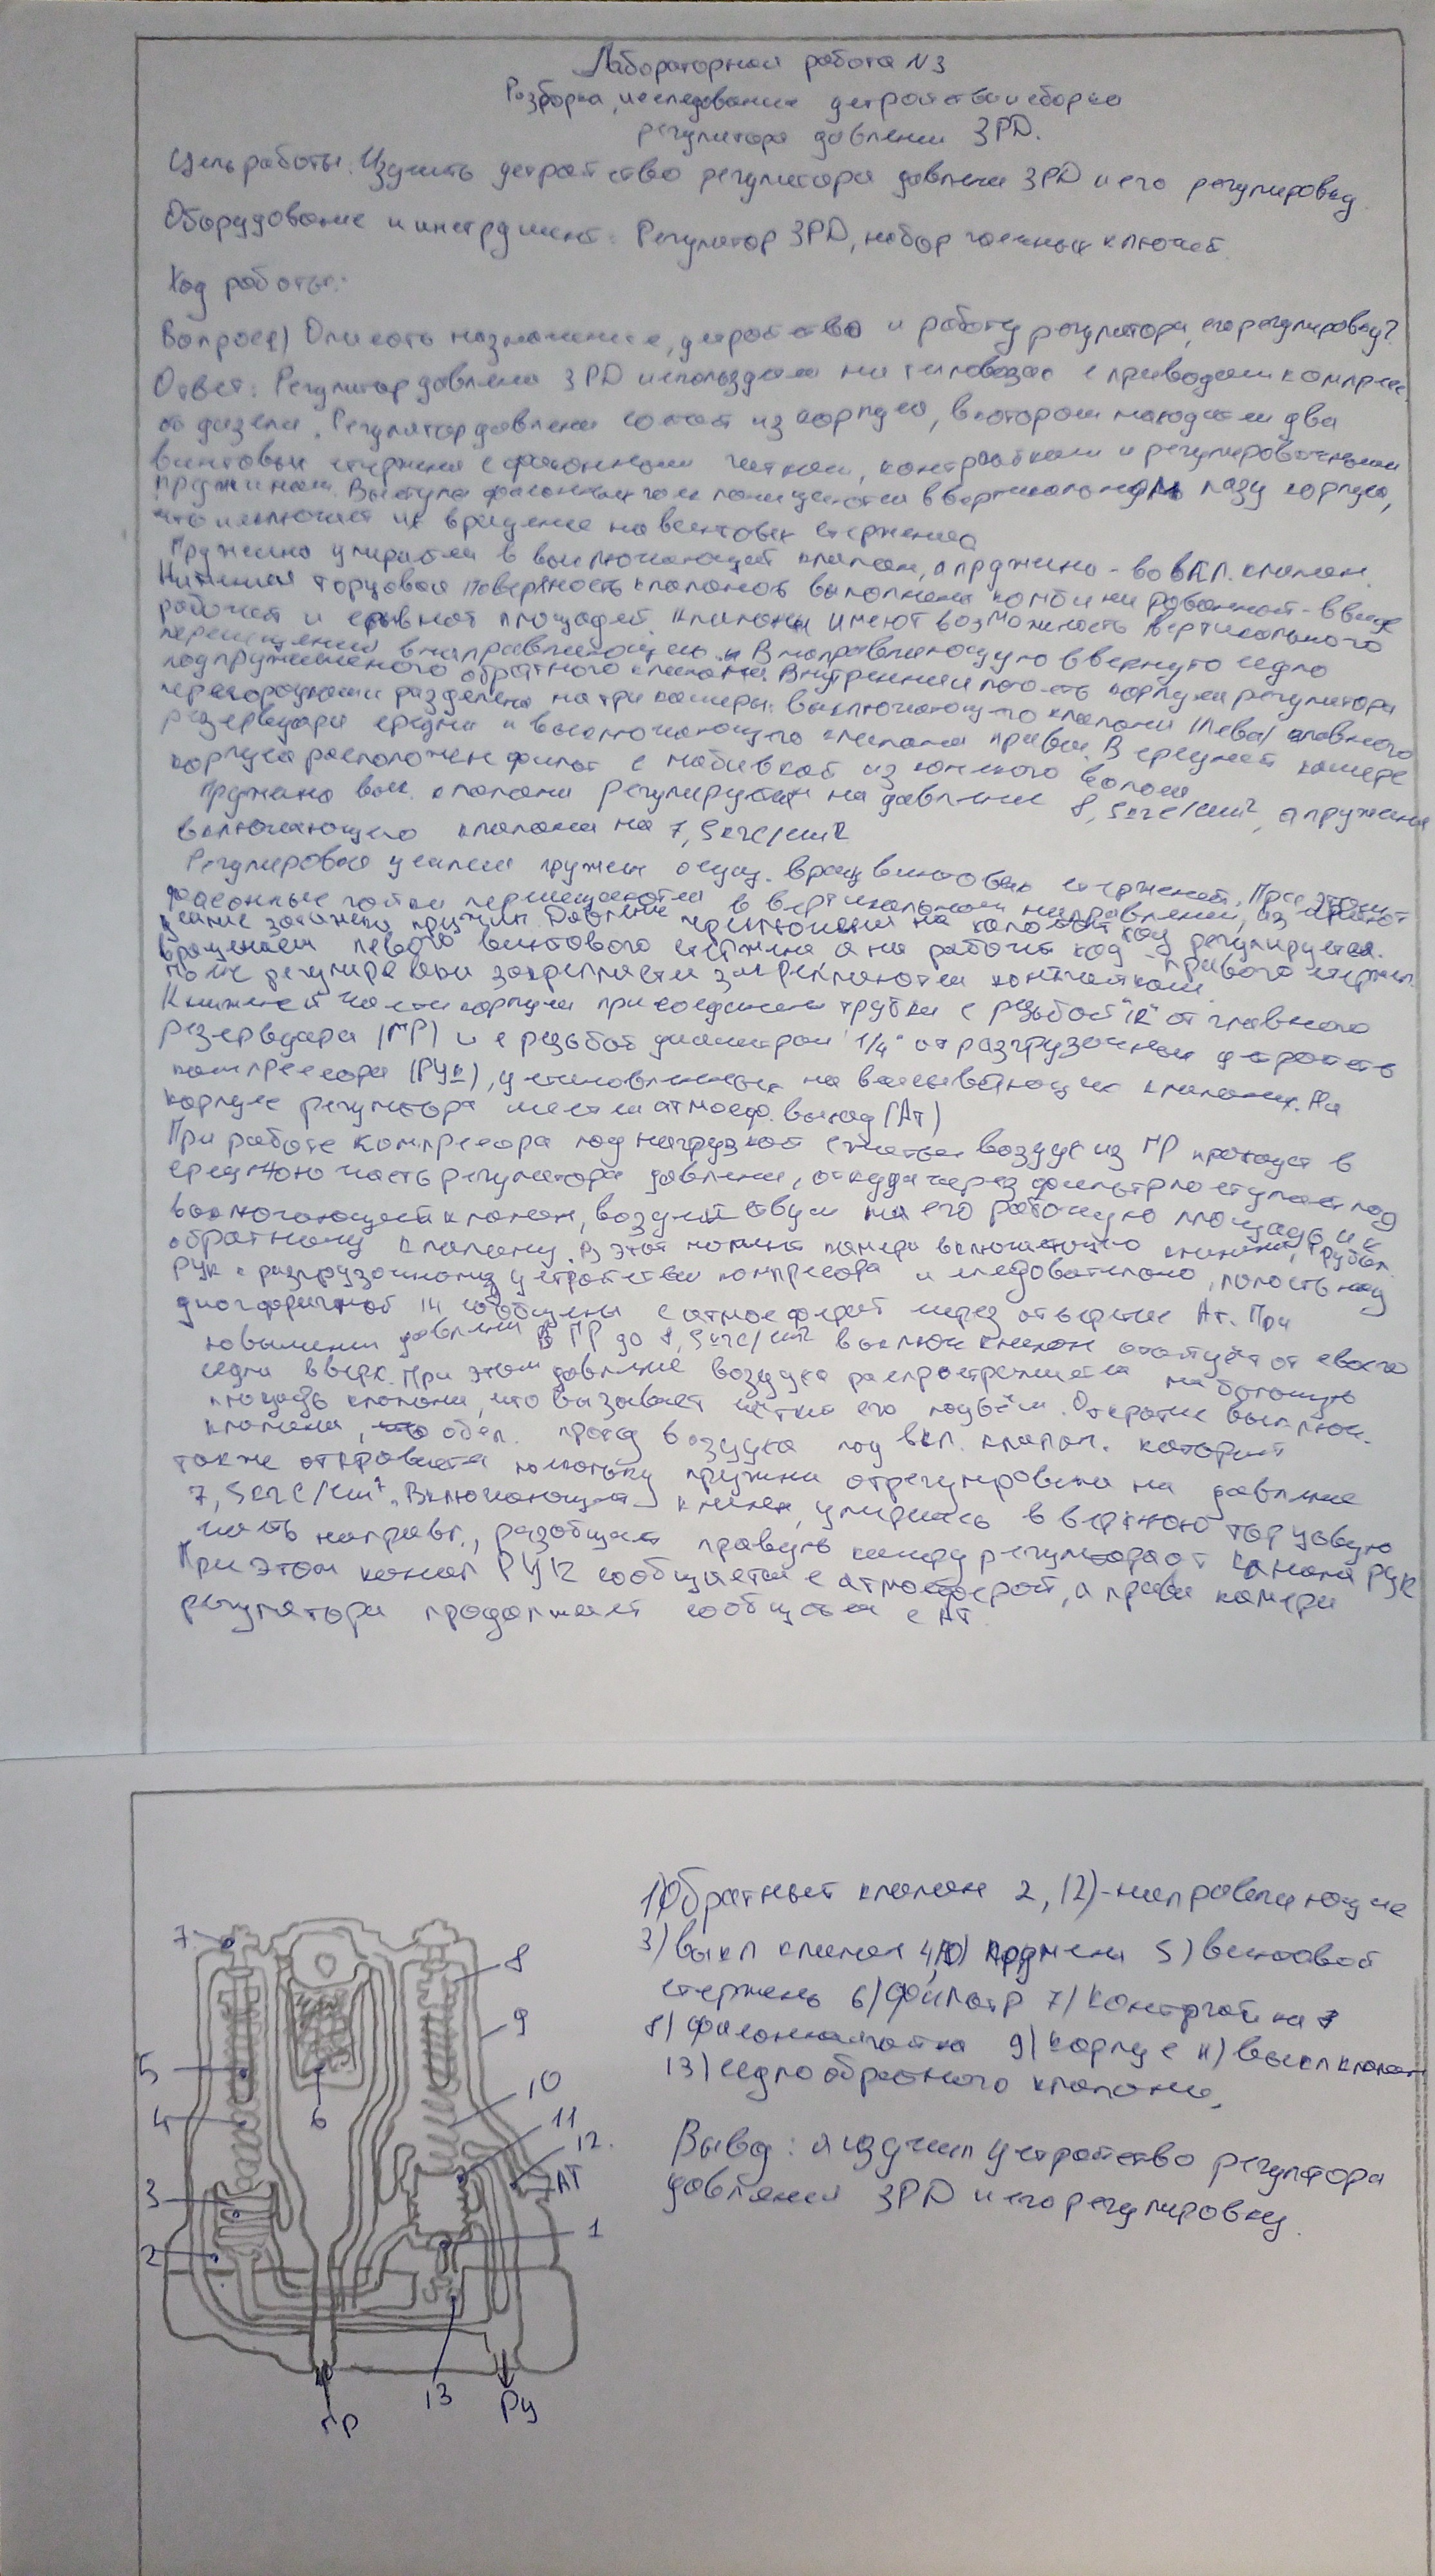 Лабораторная работа N3
Разборка, исследование устройства и сборка
регулятора давления 3РД.
Цель работы: Изучить устройство регулятора давлени 3РД и его регулировку.
Оборудование и инструмент: Регулятор 3РД, набор гаечных ключей.
Ход работы:
Вопрос 1) Описать назначение, устройство и работу регулятора, его регулировку?
Ответ: Регулятор давлена 3РД использдам на тепловозас с приводом компресс.
от дизеля. Регулятор давлени состоит из корпуса, в котором находятся два
винтовых стержня с фасонными гайками, контргайками и регулировочными
пружинами. Выступа фасонных гаек помещаются в вертикальном пазу корпуса,
что исключает их вращение на винтовых стержнях
Пружина упирается в выключающий клапан, а пружина - во вкл. клапан.
Нижняя торцовая поверхность клапанов выполнена комбинированной - в виде
рабочей и срывной площадей. Клапаны имеют возможность вертикального
перемещения в направляющих. В направляющую ввернуто седло
подпружиненого обратного клапана. Внутренняя полость корпуса регулятора
перегородками разделена на три камеры: выключающего клапана (лева) главного
резервуара средня и включающего клапана правая. В средней камере
корпуса расположен фильт с набивкой из конского волоса
Пружина вык. клапана регулируется на давление 8,5кгс/см², а пружина
включающего клапана на 7,5кгс/см²
Регулировка усилия пружин осущ. вращ винтовых стержней. При этом
фасонные гайки перемещаются в вертикальном направлении, из
усилие затяжки пружин. Давление на холостой ход регулируется
вращением левого винтового стержня а на рабочий ход - правого стержн.
После регулировки закрепляется закрепляются контргайками.
К нижней части корпуса присоединены трубки с резьбой от главного
резервуара (ГР) и с резьбой диаметром 1/4" от разгрузочных устройств
компрессора (РУК), установленных на всасывающих клапанах. На
корпусе регулятора имеется атмосф. выход (Ат)
При работе компрессора под нагрузкой сжатый воздух из ГР проходит в
среднюю часть регулятора давлени, откуда через фильтр поступает под
выключающий клапан, воздействуя на его рабочую площадь и к
обратному клапану. В этот момент камера включающего клапана, трубоп.
РУК к разгрузочному устройствам компресора и следовательно, полость над
диафрагмой 14 сообщены с атмосферой через отверстие Ат. При
повышении давлени в ГР до 8,5кгс/см² выключ клапан отойдёт от своего
седла вверх. При этом давление воздуха распространяется на большую
площадь клапана, что вызывает чёткий его подъём. Открытие выключ.
клапана, обесп. проход воздуха под вкл. клапан. который
также открывается поскольку пружина отрегулирована на давление
7,5кгс/см². Включающий клапан, упираясь в верхнюю торцовую
часть направл., разобщает правую камеру регулятора от канала РУК
При этом канал РУК сообщается с атмосферой, а права камера
регулятора продолжает сообщаться с АТ.
1) Обратный клапан 2, 12)-направляющие
3) выкл клапан 4,10) пружина 5) винтовой
стержень 6) Фильтр 7) контргайка
8) фасонная гайка 9) корпус 11) выкл клапан
13) седло обратного клапана,
Вывод: я изучил устройство регулятора
давления 3РД и его регулировку.
7
8
9
5
4
6
10
11
12.
АТ
3
2
1
13
ГР
Ру